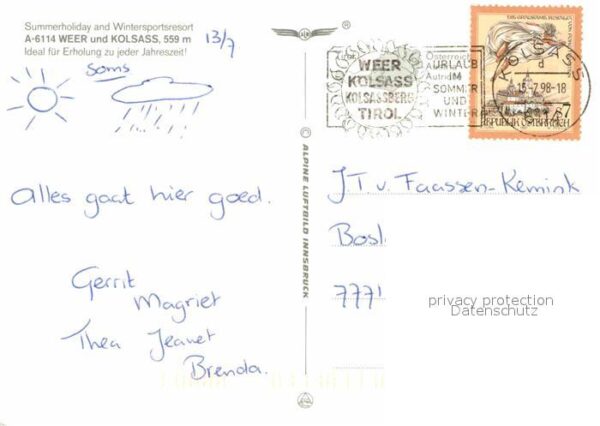 Summerholiday and Wintersportsresort
A-6114 WEER und KOLSASS, 559 m
Ideal für Erholung zu jeder Jahreszeit!
13/7
soms
Alles gaat hier goed.
Gerrit
Magriet
Thea Jeanet
Brenda.
© ALPINE LUFTBILD INNSBRUCK
WEER
KOLSASS
KOLSASSBERG
TIROL
Österreich
URLAUB
IM
SOMMER
UND
WINTER
KOLSASS
d
15.-7.98-18
7
REPUBLIK ÖSTERREICH
J.T. v. Faassen-Kemink
Bosl
777
privacy protection
Datenschutz